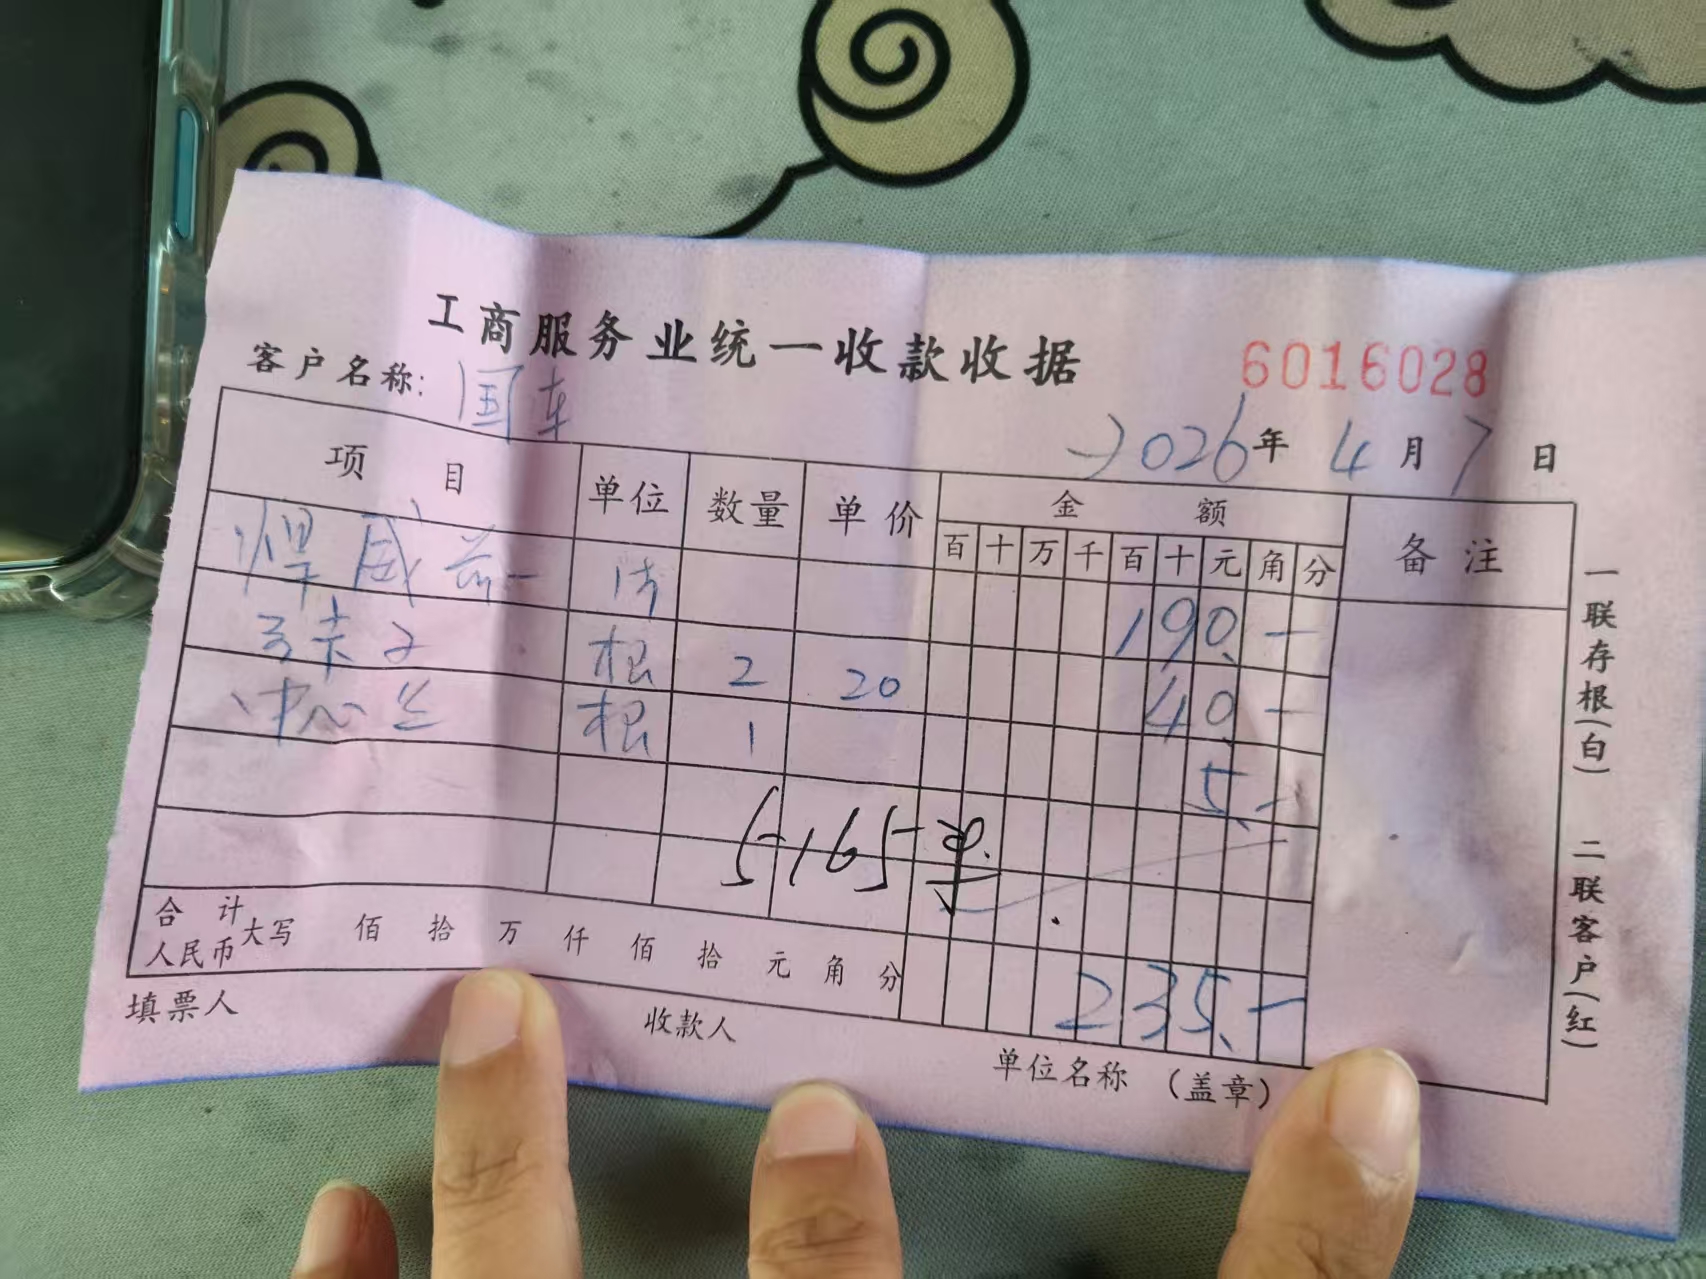 工商服务业统一收款收据
6016028
客户名称: 国车
2026年 4月7日
项目 单位 数量 单价 金额 备注
百十万千百十元角分
悍威前一 付 190.—
弓卡子 根 2 20 40.—
中心丝 根 1 5.—
5-165-
合计人民币大写 佰 拾 万 仟 佰 拾 元 角 分 235.—
填票人 收款人 单位名称 (盖章)
一联存根(白) 二联客户(红)